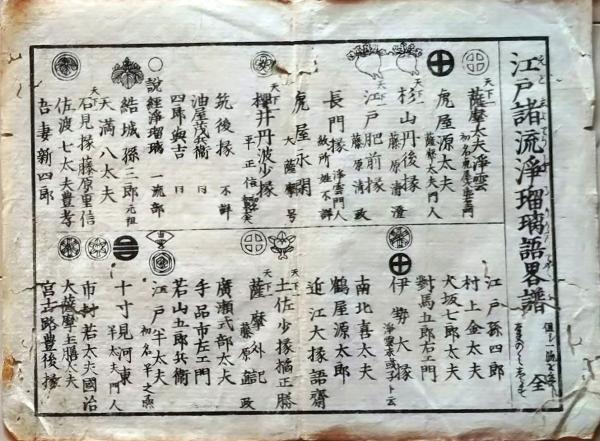 江戸諸流浄瑠璃語畧譜
全
天下一
薩摩太夫浄雲
虎屋源太夫
薩摩太夫門人
天下一
杉山丹後掾
藤原清澄
天下一
江戸肥前掾
藤原清政
長門掾
浄雲門人
虎屋永閑
大薩摩号
天下一
櫻井丹波少掾
平正信
筑後掾
不詳
油屋茂兵衛
四郎與吉
〇説經浄瑠璃
一流部
結城孫三郎
元祖
天満八太夫
天下一
石見掾藤原重信
佐渡七太夫豊孝
吾妻新四郎
江戸孫四郎
村上金太夫
大坂七郎太夫
對馬五郎右エ門
伊勢大掾
南北喜太夫
鶴屋源太郎
近江大掾語齋
天下一
土佐少掾橘正勝
天下一
薩摩外記
藤原
廣瀬式部太夫
手品市左エ門
若山五郎兵衛
江戸半太夫
初名半之丞
十寸見河東
半太夫門人
市村若太夫國治
大薩摩主膳太夫
宮古路豊後掾